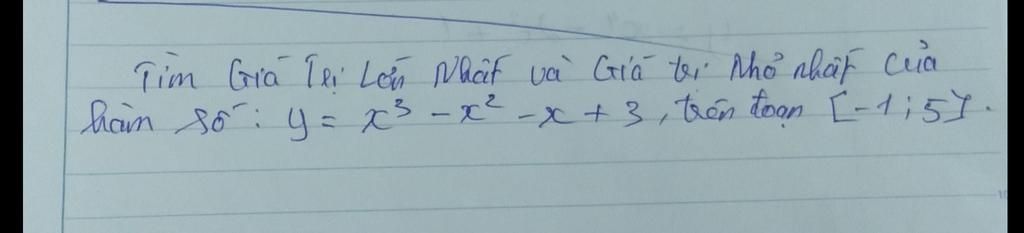 Tìm Giá Trị Lớn Nhất và Giá trị nhỏ nhất của
hàm số: y = x³ - x² - x + 3, trên đoạn [-1; 5].